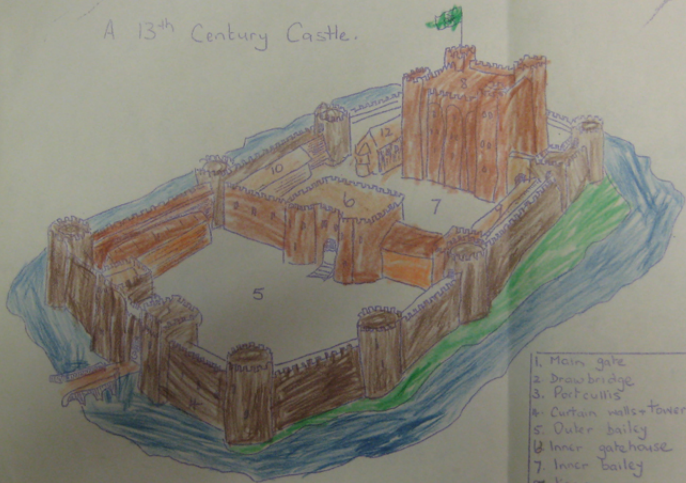 A 13th Century Castle.
8
12
10
6
7
9
5
1. Main gate
2 Drawbridge
3. Portcullis
4. Curtain walls + tower
5 Outer bailey
6 Inner gatehouse
7. Inner bailey